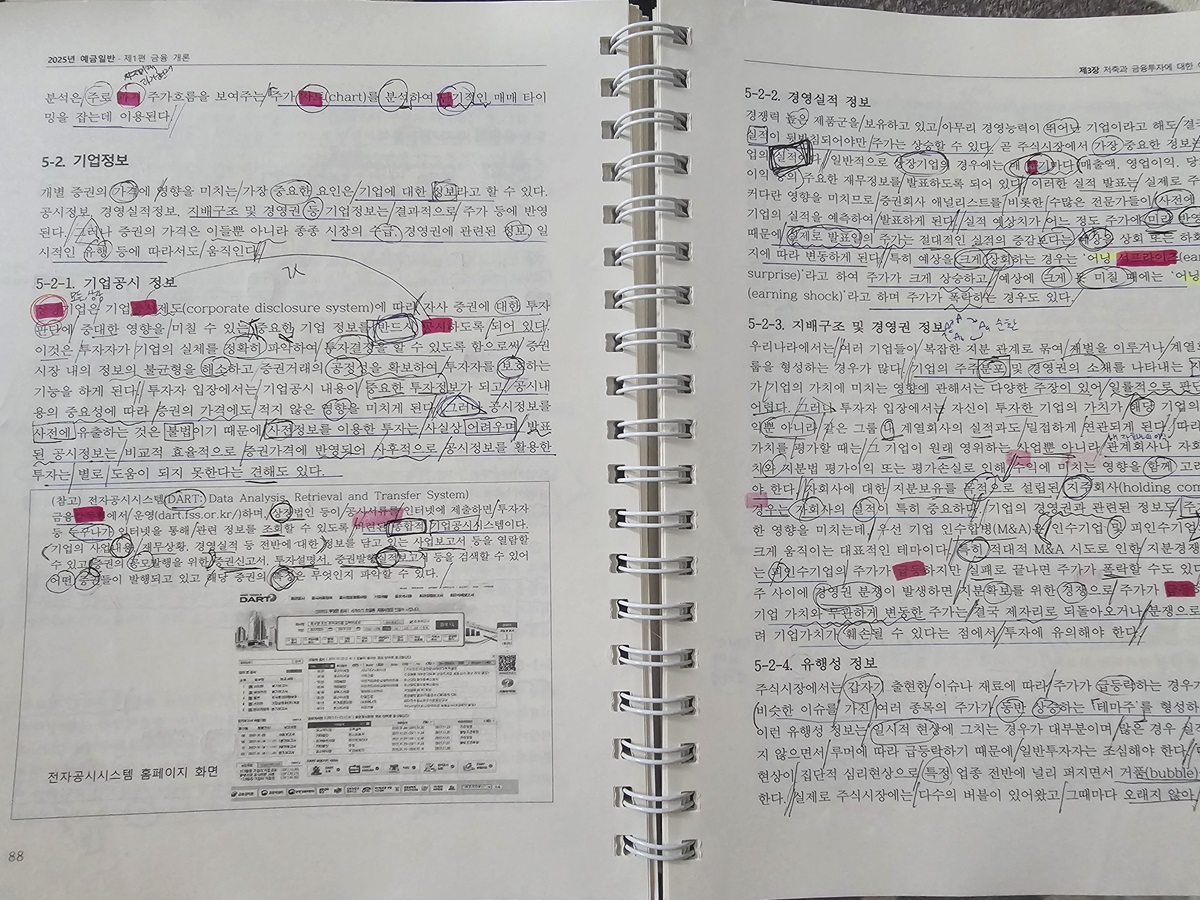 2025년 예금일반 · 제1편 금융 개론
분석은 주로 주가흐름을 보여주는 주가 (chart)를 분석하여 매매 타이
밍을 잡는데 이용된다.
5-2. 기업정보
개별 증권의 가격에 영향을 미치는 가장 중요한 요인은 기업에 대한 정보라고 할 수 있다.
공시정보, 경영실적정보, 지배구조 및 경영권 등 기업정보는 결과적으로 주가 등에 반영
된다. 그러나 증권의 가격은 이들뿐 아니라 종종 시장의 수급, 경영권에 관련된 정보, 일
시적인 유행 등에 따라서도 움직인다.
5-2-1. 기업공시 정보
기업은 기업 제도(corporate disclosure system)에 따라 자사 증권에 대한 투자
판단에 중대한 영향을 미칠 수 있는 중요한 기업 정보를 반드시 하도록 되어 있다.
이것은 투자자가 기업의 실체를 정확히 파악하여 투자결정을 할 수 있도록 함으로써 증권
시장 내의 정보의 불균형을 해소하고 증권거래의 공정성을 확보하여 투자자를 보호하는
기능을 하게 된다. 투자자 입장에서는 기업공시 내용이 중요한 투자정보가 되고 공시내
용의 중요성에 따라 증권의 가격에도 적지 않은 영향을 미치게 된다. 그러나 공시정보를
사전에 유출하는 것은 불법이기 때문에 사전정보를 이용한 투자는 사실상 어려우며 발표
된 공시정보는 비교적 효율적으로 증권가격에 반영되어 사후적으로 공시정보를 활용한
투자는 별로 도움이 되지 못한다는 견해도 있다.
(참고) 전자공시시스템(DART: Data Analysis, Retrieval and Transfer System)
금융 에서 운영(dart.fss.or.kr/)하며, 상장법인 등이 공시서류를 인터넷에 제출하면 투자자
등 누구나 인터넷을 통해 관련 정보를 조회할 수 있도록 마련된 종합적 기업공시시스템이다.
기업의 사업내용, 재무상황, 경영실적 등 전반에 대한 정보를 담고 있는 사업보고서 등을 열람할
수 있고 증권의 공모발행을 위한 증권신고서, 투자설명서, 증권발행실적보고서 등을 검색할 수 있어
어떤 증권들이 발행되고 있고 해당 증권의 특징은 무엇인지 파악할 수 있다.
DART
전자공시시스템 홈페이지 화면
88
제3장 저축과 금융투자에 대한
5-2-2. 경영실적 정보
경쟁력 높은 제품군을 보유하고 있고 아무리 경영능력이 뛰어난 기업이라고 해도 결국
실적이 뒷받침되어야만 주가는 상승할 수 있다. 곧 주식시장에서 가장 중요한 정보는
업의 실적이다. 일반적으로 상장기업의 경우에는 매 마다 매출액, 영업이익, 당
이익 등의 주요한 재무정보를 발표하도록 되어 있다. 이러한 실적 발표는 실제로 주
커다란 영향을 미치므로 증권회사 애널리스트를 비롯한 수많은 전문가들이 사전에
기업의 실적을 예측하여 발표하게 된다. 실적 예상치가 어느 정도 주가에 미리 반
때문에 실제로 발표일의 주가는 절대적인 실적의 증감보다는 예상을 상회 또는 하회
지에 따라 변동하게 된다. 특히 예상을 크게 상회하는 경우는 '어닝 서프라이즈(ear
surprise)'라고 하여 주가가 크게 상승하고 예상에 크게 못 미칠 때에는 '어닝
(earning shock)'라고 하며 주가가 폭락하는 경우도 있다.
5-2-3. 지배구조 및 경영권 정보
우리나라에서는 여러 기업들이 복잡한 지분 관계로 묶여 재벌을 이루거나 계열회
룹을 형성하는 경우가 많다. 기업의 주주분포 및 경영권의 소재를 나타내는 지
가 기업의 가치에 미치는 영향에 관해서는 다양한 주장이 있어 일률적으로 판단
어렵다. 그러나 투자자 입장에서는 자신이 투자한 기업의 가치가 해당 기업의
익뿐 아니라 같은 그룹 내 계열회사의 실적과도 밀접하게 연관되게 된다. 따라
가치를 평가할 때는 그 기업이 원래 영위하는 사업뿐 아니라 관계회사나 자회
치와 지분법 평가이익 또는 평가손실로 인해 수익에 미치는 영향을 함께 고
야 한다. 자회사에 대한 지분보유를 목적으로 설립된 지주회사(holding com
경우는 자회사의 실적이 특히 중요하며 기업의 경영권과 관련된 정보도 주
한 영향을 미치는데 우선 기업 인수합병(M&A)은 인수기업 및 피인수기업
크게 움직이는 대표적인 테마이다. 특히 적대적 M&A 시도로 인한 지분경쟁
는 피인수기업의 주가가 급등하지만 실패로 끝나면 주가가 폭락할 수도 있다
주 사이에 경영권 분쟁이 발생하면 지분확보를 위한 경쟁으로 주가가
기업 가치와 무관하게 변동한 주가는 결국 제자리로 되돌아오거나 분쟁으로
려 기업가치가 훼손될 수 있다는 점에서 투자에 유의해야 한다.
5-2-4. 유행성 정보
주식시장에서는 갑자기 출현한 이슈나 재료에 따라 주가가 급등락하는 경우가
비슷한 이슈를 가진 여러 종목의 주가가 동반 상승하는 '테마주'를 형성하
이런 유행성 정보는 일시적 현상에 그치는 경우가 대부분이며 많은 경우 실적
지 않으면서 루머에 따라 급등락하기 때문에 일반투자자는 조심해야 한다.
현상이 집단적 심리현상으로 특정 업종 전반에 널리 퍼지면서 거품(bubble)
한다. 실제로 주식시장에는 다수의 버블이 있어왔고 그때마다 오래지 않아